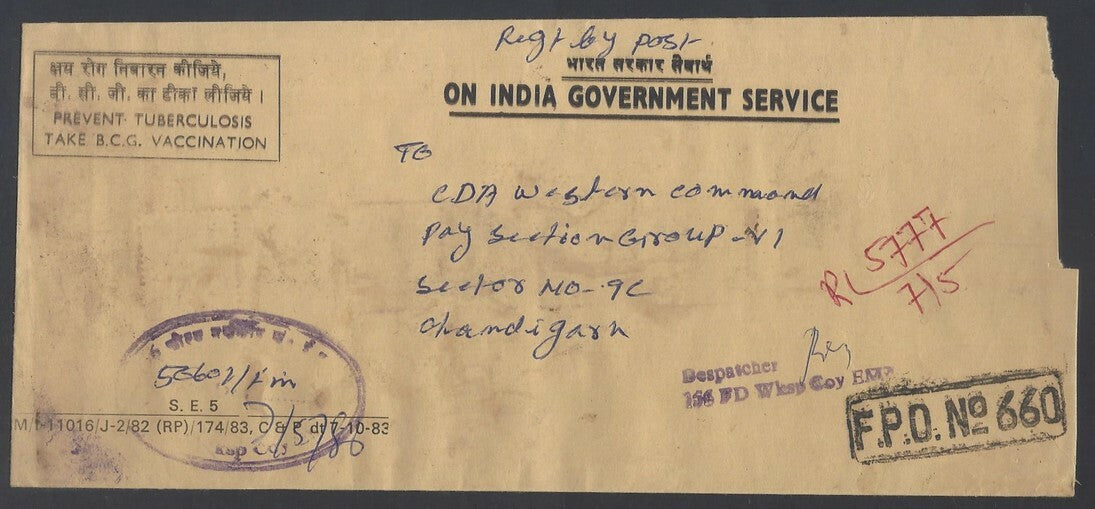 Regt by post
भारत सरकार सेवार्थ
ON INDIA GOVERNMENT SERVICE
क्षय रोग निवारन कीजिये,
बी. सी. जी. का टीका लीजिये।
PREVENT TUBERCULOSIS
TAKE B.C.G. VACCINATION
To
CDA Western Command
Pay Section Group-VI
Sector No-9C
Chandigarh
RL 5777
7/5
Despatcher
156 FD Wksp Coy EME
F.P.O. No 660
S. E. 5
M/I-11016/J-2/82 (RP)/174/83, C & P dt 7-10-83
7/5/86